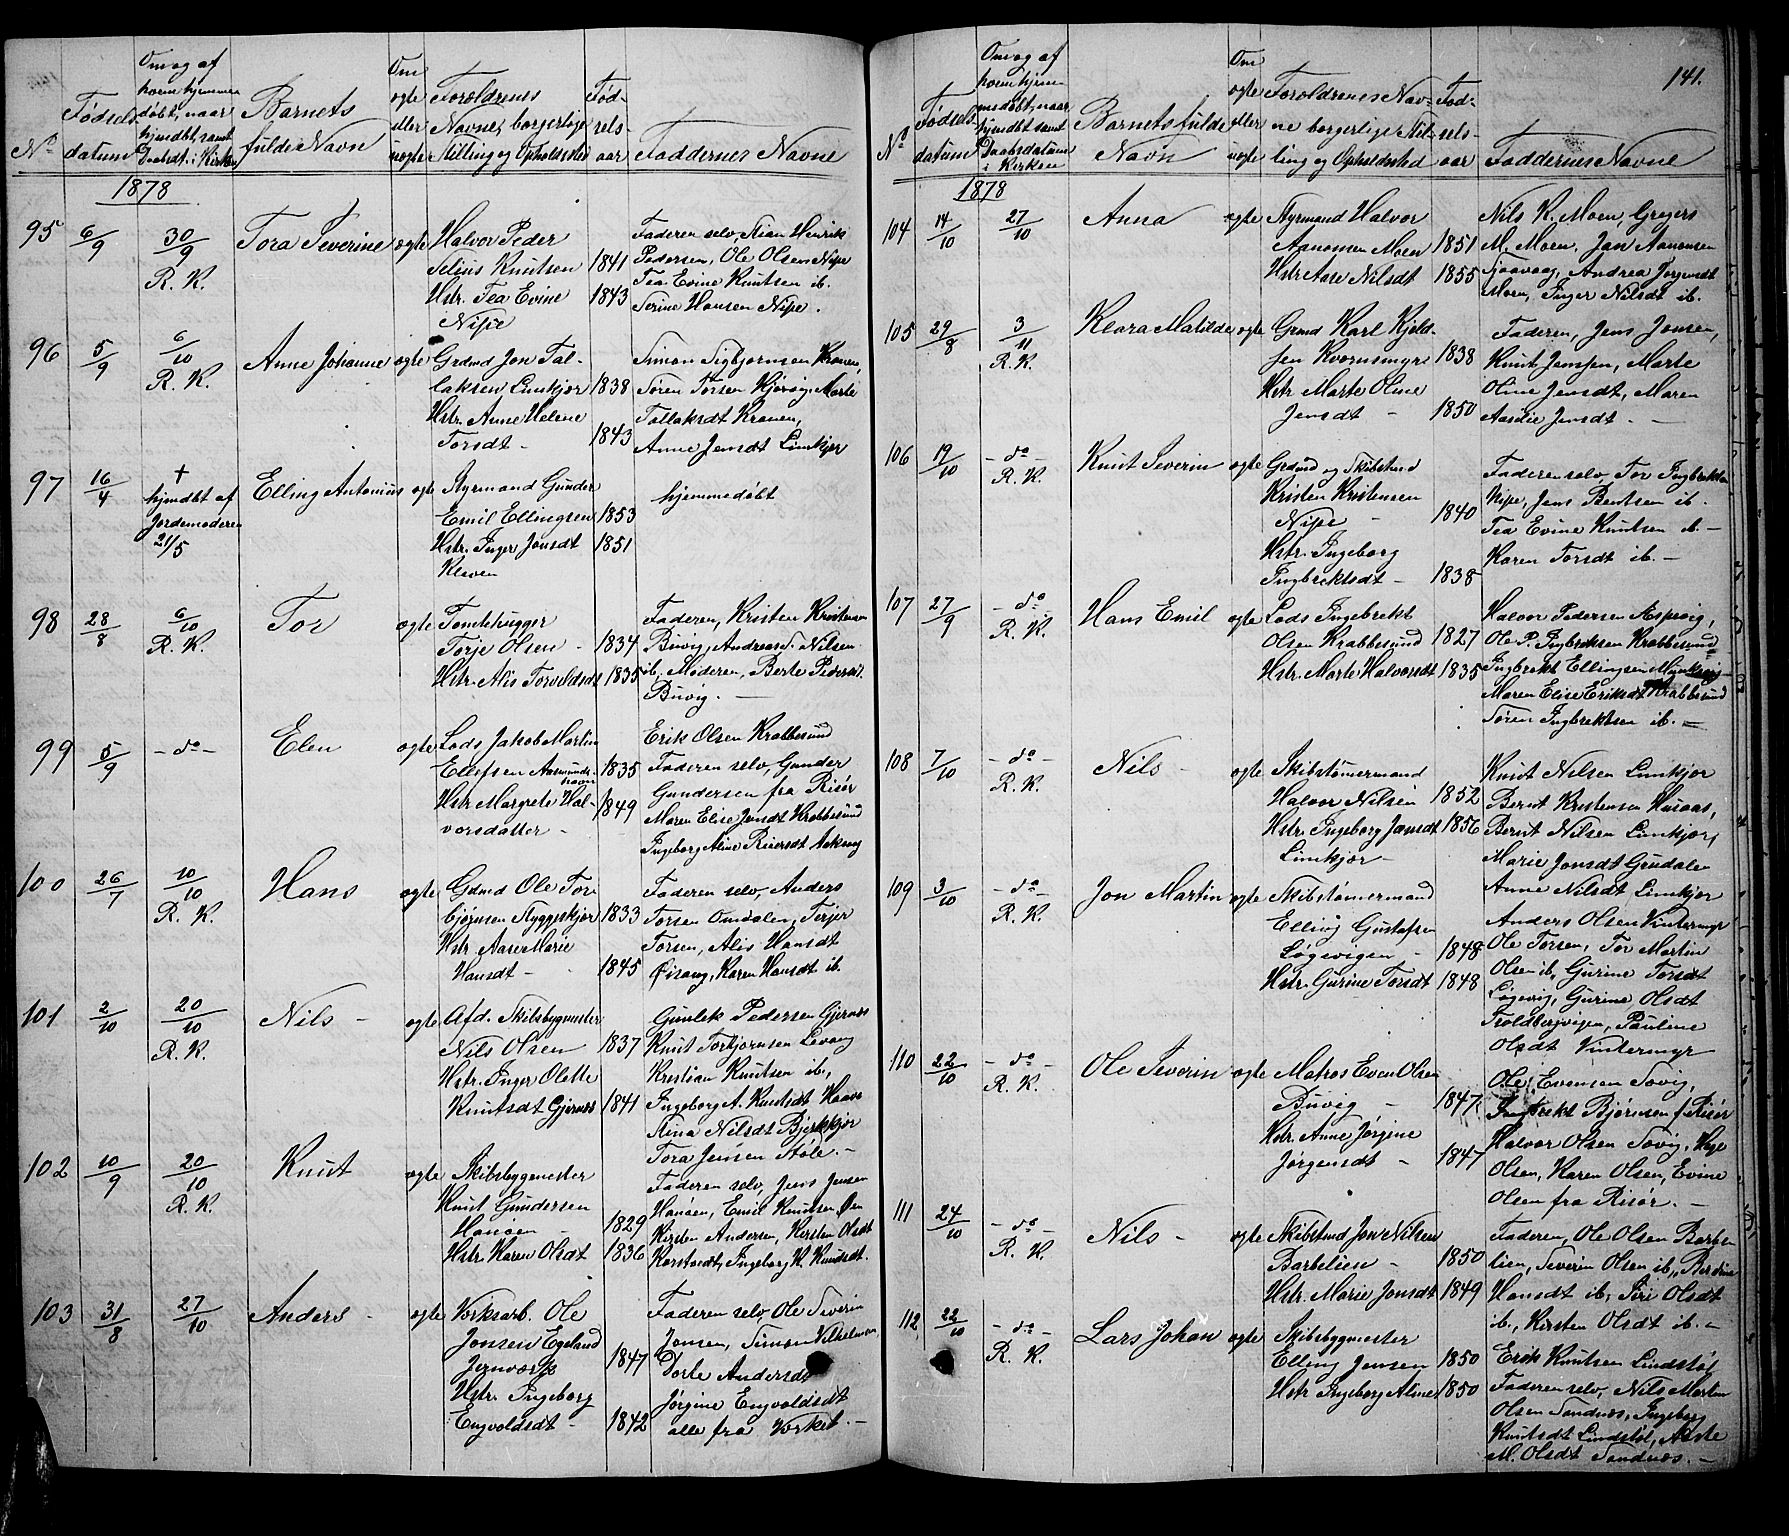 Nº
Fødsels
datum
Om og af
hvem hjemme
døbt, naar
hjmdbt samt
Daabsdt. i Kirken
Barnets
fulde Navn
Om
ægte
eller
uægte
Forældrenes
Navne, borgerlige
Stilling og Opholdssted
Fød-
sels-
aar
Faddernes Navne
1878
95 6/9 30/9 R. K.
Tora Severine ægte
Halvor Peder
Selius Knutsen 1841
Hstr. Tea Evine 1843
Nipe
Faderen selv, Stian Henrik
Pedersen, Ole Olsen Nipe
Tea Evine Knutsen ib.
Serine Hansen Nipe.
96 5/9 6/10 R. K.
Anne Johanne ægte
Grdmd Jon Tal-
laksen Limkjær 1838
Hstr. Anne Helene
Torsdt - 1843
Simon Sigbjørnsen Kranen,
Søren Torsen Kjøvig, Marte
Tollaksdt Kranen,
Anne Jensdt Limkjær
97 16/4 +
hjmdbt af
Jordemoderen
21/5
Elling Antonius ægte
Styrmand Gunder
Emil Ellingsen 1853
Hstr. Inger Jonsdt 1851
Kleven
hjemmedøbt
98 28/8 6/10 R. K.
Tor ægte
Tomtehugger
Torje Olsen - 1834
Hstr. Alis Torveldsdt 1835
Faderen, Kristen Kristensen
Buvig, Andreas S. Nilsen
ib., Moderen, Berte Pedersdt.
Buvig. -
99 5/9 - do -
Elen ægte
Lods Jakob Martin
Ellefsen Aasmunds-
havn 1835
Hstr Margrete Hal- 1849
vorsdatter -
Erik Olsen Krabbesund
Faderen selv, Gunder
Gundersen fra Risør
Maren Elise Jensdt Krabbesund
Ingeborg Aline Reiersdt Askvag
100 26/7 10/10 R. K.
Hans ægte
Grdmd Ole Tor-
bjørnsen Skyggeskjær 1833
Hstr. Aase Marie
Hansdt - 1845
Faderen selv, Anders
Torsen Omdalen, Terjer
Torsen, Alis Hansdt
Øisang, Karen Hansdt ib.
101 2/10 20/10 R. K.
Nils - ægte
Afd. Skibsbygmester
Nils Olsen 1837
Hstr. Inger Olette
Knutsdt Gjernæs 1841
Gunlek Pedersen Gjernæs
Knut Torkjørnsen Levang
Kristian Knutsen ib.,
Ingeborg A. Knutsdt Haave
Stina Nilsdt Bjerkkjær
Tora Jensen Støle. -
102 10/9 20/10 R. K.
Knut ægte
Skibsbygmester
Knut Gundersen
Hansen 1829
Hstr Karen Olsdt 1836
Faderen selv, Jens Jensen
Hansen, Emil Knutsen Øen
Kirsten Andersen, Kirsten Olsdt
Korstvedt, Ingeborg K. Knutsdt.
103 31/8 27/10
Anders - ægte
Verksarb. Ole
Jonsen Egeland
Jernværk 1847
Hstr. Ingeborg
Engvoldsdt - 1842
Faderen selv, Ole Severin
Jonsen, Simon Vilhelmsen
Dorte Andersdt
Jørgine Engvoldsdt
alle fra Verket. -
141.
Nº
Fødsels
datum
Om og af
hvem hjem-
medøbt, naar
hjmdbt samt
Daabsdatum
i Kirken
Barnets fulde
Navn
Om
ægte
eller
uægte
Forældrenes Nav-
ne borgerlige Stil-
ling og Opholdssted
Fød-
sels-
aar
Faddernes Navne
1878
104 14/10 27/10
Anna ægte
Styrmand Halvor
Aanonsen Moen 1851
Hstr Aase Nilsdt 1855
Nils K. Moen, Gregers
M. Moen, Jan Aanonsen
Sjaavaag, Andrea Jørgensdt
Moen, Inger Nilsdt ib.
105 29/8 3/11 R. K.
Klara Matilde ægte
Grmd Karl Kjeld-
sen Kvernsmyr 1838
Hstr Marte Oline
Jensdt - 1850
Faderen, Jens Jonsen,
Knut Jensen, Marte
Oline Jensdt, Maren
Aaselie Jensdt -
106 19/10 - do - R. K.
Knut Severin ægte
Grdmd og Skibstmd
Kristen Kristensen
Nipe - 1840
Hstr. Ingeborg
Ingbrektsdt - 1838
Faderen selv, Tor Ingbrektsen
Nipe, Jens Bentsen ib.
Tea Evine Knutsen ib. -
Karen Torsdt ib. -
107 27/9 - do - R. K.
Hans Emil ægte
Lods Ingebrekt
Olsen Krabbesund 1827
Hstr. Marte Halvorsdt 1835
Halvor Pedersen Aspevig,
Ole P. Ingbriktsen Krabbesund
Ingbrekt Ellingsen
Maren Elise Eriksdt Krabbesund
Søren Ingbrektsen ib. -
108 7/10 - do - R. K.
Nils - ægte
Skibstømermand
Halvor Nilsen 1852
Hstr. Ingeborg Jansdt 1856
Limkjær -
Knut Nilsen Limkjær
Bernt Kristensen Husaas,
Bernt Nilsen Limkjær,
Marie Jonsdt Grudalen
Anne Nilsdt Limkjær
109 3/10 - do - R. K.
Jon Martin ægte
Skibstømermand
Elling Gustafsen
Løgevigen - 1848
Hstr. Gurine Torsdt 1848
Anders Olsen Vintermyr
Ole Torsen, Tor Martin
Olsen ib., Gurine Torsdt
Løgevig, Gurine Olsdt
Troldbergvigen, Pauline
Olsdt Vintermyr
110 22/10 - do - R. K.
Ole Severin ægte
Matros Even Olsen
Buvig - 1847
Hstr. Anne Jørgine
Jørgensdt - 1847
Ole Evensen Søvig,
Ingbrekt Bjørnsen f. Risør
Halvor Olsen Søvig,
Olsen, Karen Olsen, Evine
Olsen fra Risør. -
111 24/10 - do - R. K.
Nils - ægte
Skibstmd Jon Nilsen
Barbelien - 1850
Hstr. Marie Jonsdt 1849
Faderen, Ole Olsen Barbe-
lien, Severin Olsen ib., Berdine
Hansdt ib, Siri Olsdt
ib., Kirsten Olsdt ib. -
112 22/10 - do - R. K.
Lars Johan ægte
Skibsbygmester
Elling Jensen 1850
Hstr Ingeborg Aline 1850
Erik Knutsen Lindstøl
Faderen selv, Nils Morten
Olsen Sandnæs, Ingeborg
Knutsdt Lindstøl, Aaste
M. Olsdt Sandnæs. -